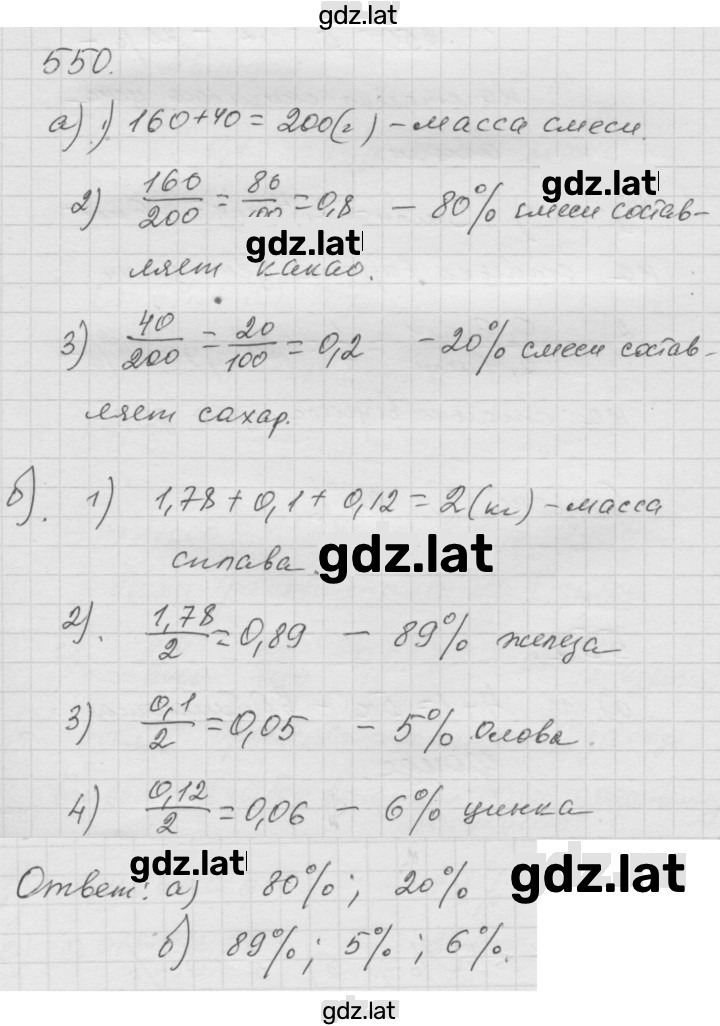 gdz.lat
550.
а) 1) 160+40 = 200(г) – масса смеси.
2) 160/200 = 80/100 = 0,8 – 80% смеси состав-
gdz.lat
gdz.lat
ляет какао.
3) 40/200 = 20/100 = 0,2 – 20% смеси состав-
ляет сахар.
б). 1) 1,78 + 0,1 + 0,12 = 2(кг) – масса
сплава.
gdz.lat
2). 1,78/2 = 0,89 – 89% железа
3) 0,1/2 = 0,05 – 5% олова.
4) 0,12/2 = 0,06 – 6% цинка
gdz.lat
gdz.lat
Ответ: а) 80%; 20%
б) 89%; 5%; 6%.
gdz.lat